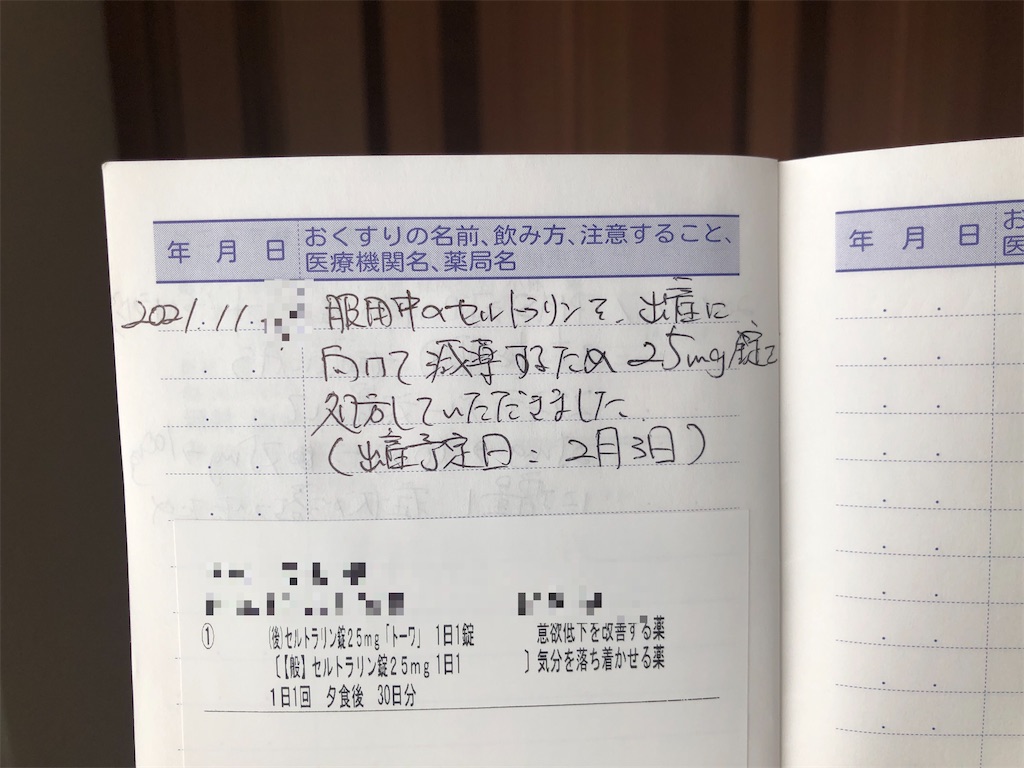 年 月 日 おくすりの名前、飲み方、注意すること、
医療機関名、薬局名
2021.11. 服用中のセルトラリンを、出産に
向けて減薬するため25mg錠を
処方していただきました。
(出産予定日:2月3日)
① (後)セルトラリン錠25mg「トーワ」 1日1錠 意欲低下を改善する薬
〔【般】セルトラリン錠25mg 1日1 〕気分を落ち着かせる薬
1日1回 夕食後 30日分
年 月 日 お
医